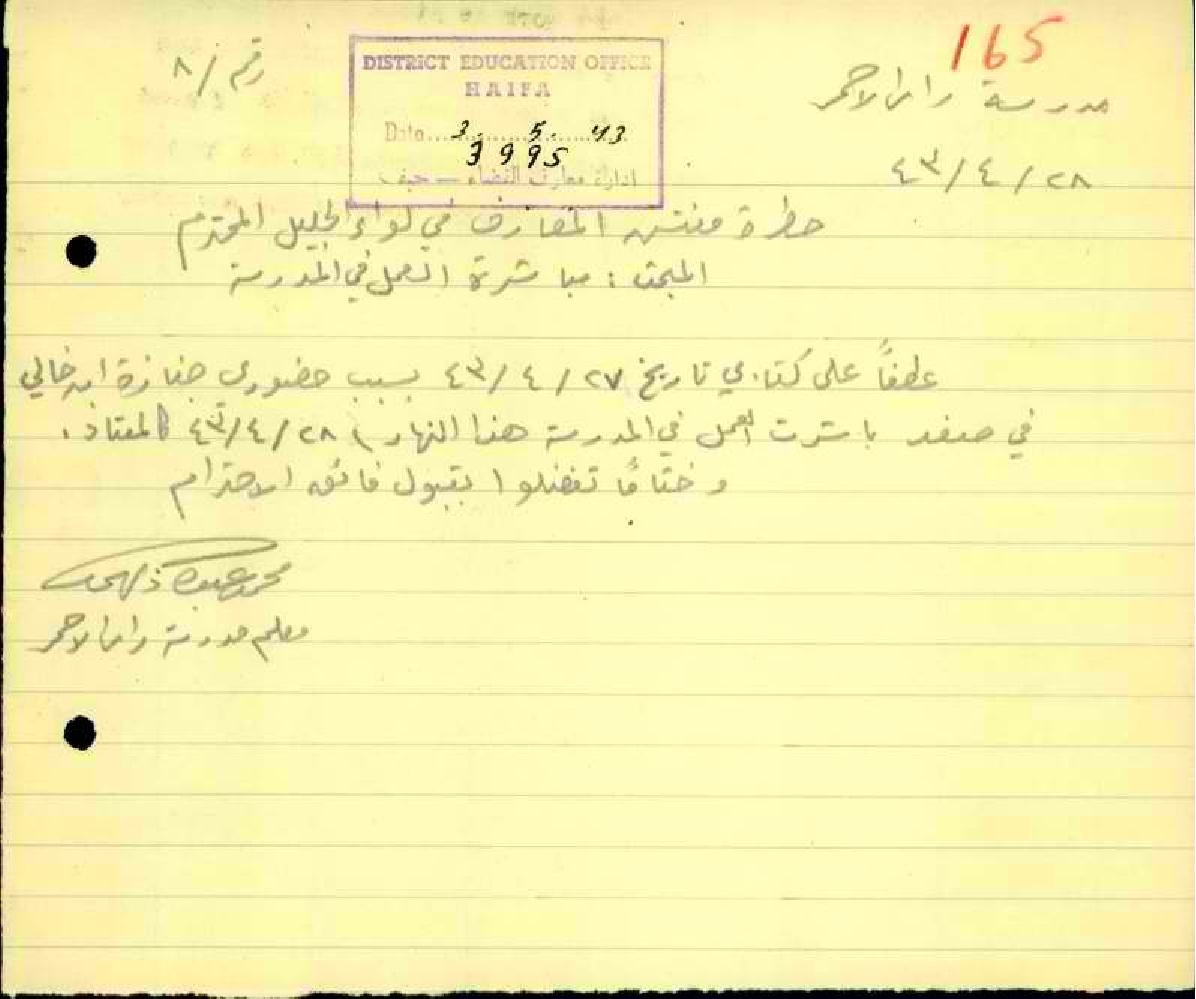 165
مدرسة راس الاحمر
رقم / ٨
٢٨ / ٤ / ٤٣
DISTRICT EDUCATION OFFICE
HAIFA
Date 3. 5. 43
3995
ادارة معارف القضاء — حيفا
حضرة مفتش المعارف في لواء الجليل المحترم
المبحث : مباشرة العمل في المدرسة
عطفاً على كتابي تاريخ ٢٧ / ٤ / ٤٣ بسبب حضوري جنازة ابن خالي
في صفد باشرت العمل في المدرسة هذا النهار ٢٨ / ٤ / ٤٣ كالمعتاد .
وختاماً تفضلوا بقبول فائق الاحترام
محمد
معلم مدرسة راس الاحمر